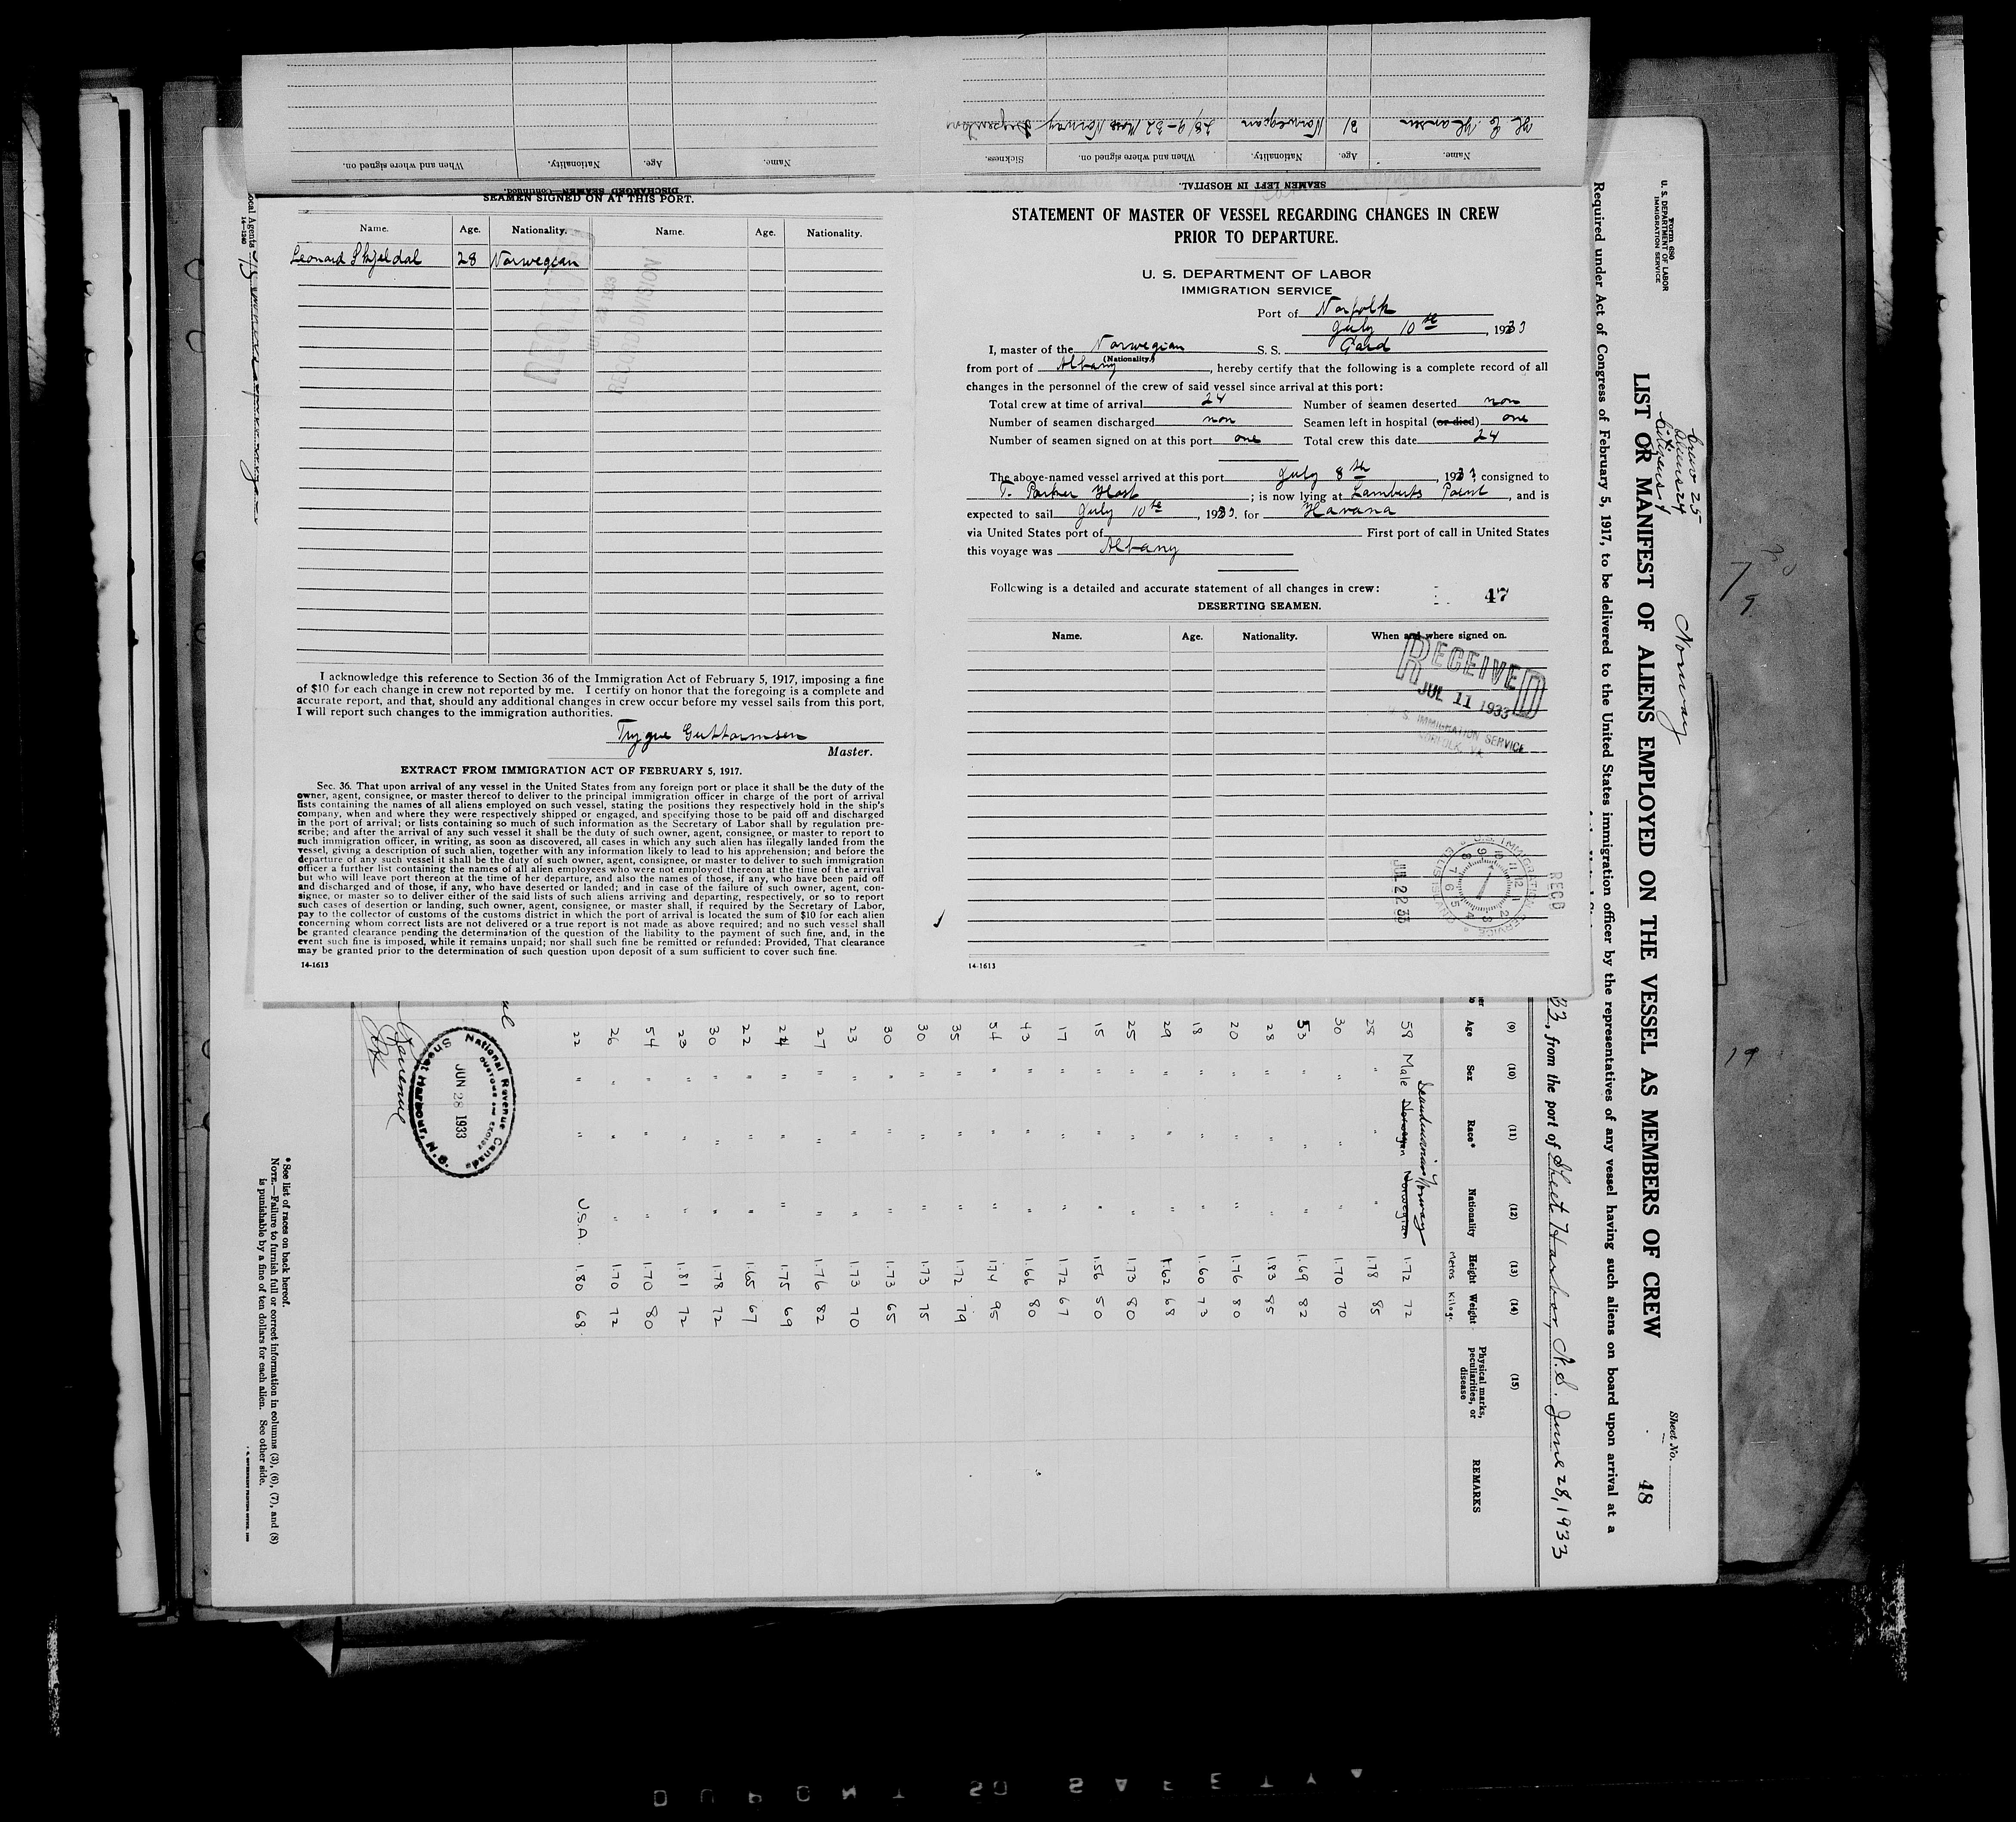 Name. Age. Nationality. When and where signed on.
DISCHARGED SEAMEN—Continued.
SEAMEN LEFT IN HOSPITAL.
Name. Age. Nationality. When and where signed on. Sickness.
H. E. Hansen 31 Norwegian 28/9-32 Moss Norway
SEAMEN SIGNED ON AT THIS PORT.
Name. Age. Nationality. Name. Age. Nationality.
Leonard Skjeldal 28 Norwegian
RECORD DIVISION
I acknowledge this reference to Section 36 of the Immigration Act of February 5, 1917, imposing a fine
of $10 for each change in crew not reported by me. I certify on honor that the foregoing is a complete and
accurate report, and that, should any additional changes in crew occur before my vessel sails from this port,
I will report such changes to the immigration authorities.
Trygve Guttormsen
Master.
EXTRACT FROM IMMIGRATION ACT OF FEBRUARY 5, 1917.
Sec. 36. That upon arrival of any vessel in the United States from any foreign port or place it shall be the duty of the
owner, agent, consignee, or master thereof to deliver to the principal immigration officer in charge of the port of arrival
lists containing the names of all aliens employed on such vessel, stating the positions they respectively hold in the ship's
company, when and where they were respectively shipped or engaged, and specifying those to be paid off and discharged
in the port of arrival; or lists containing so much of such information as the Secretary of Labor shall by regulation pre-
scribe; and after the arrival of any such vessel it shall be the duty of such owner, agent, consignee, or master to report to
such immigration officer, in writing, as soon as discovered, all cases in which any such alien has illegally landed from the
vessel, giving a description of such alien, together with any information likely to lead to his apprehension; and before the
departure of any such vessel it shall be the duty of such owner, agent, consignee, or master to deliver to such immigration
officer a further list containing the names of all alien employees who were not employed thereon at the time of the arrival
but who will leave port thereon at the time of her departure, and also the names of those, if any, who have been paid off
and discharged and of those, if any, who have deserted or landed; and in case of the failure of such owner, agent, con-
signee, or master so to deliver either of the said lists of such aliens arriving and departing, respectively, or so to report
such cases of desertion or landing, such owner, agent, consignee, or master shall, if required by the Secretary of Labor,
pay to the collector of customs of the customs district in which the port of arrival is located the sum of $10 for each alien
concerning whom correct lists are not delivered or a true report is not made as above required; and no such vessel shall
be granted clearance pending the determination of the question of the liability to the payment of such fine, and, in the
event such fine is imposed, while it remains unpaid; nor shall such fine be remitted or refunded: Provided, That clearance
may be granted prior to the determination of such question upon deposit of a sum sufficient to cover such fine.
14-1613
STATEMENT OF MASTER OF VESSEL REGARDING CHANGES IN CREW
PRIOR TO DEPARTURE.
U. S. DEPARTMENT OF LABOR
IMMIGRATION SERVICE
Port of Norfolk
July 10th, 1933
I, master of the Norwegian S. S. Gard
(Nationality.)
from port of Albany, hereby certify that the following is a complete record of all
changes in the personnel of the crew of said vessel since arrival at this port:
Total crew at time of arrival 24 Number of seamen deserted non
Number of seamen discharged non Seamen left in hospital (or died) one
Number of seamen signed on at this port one Total crew this date 24
The above-named vessel arrived at this port July 8th, 1933, consigned to
T. Parker Host; is now lying at Lamberts Point, and is
expected to sail July 10th, 1933, for Havana
via United States port of First port of call in United States
this voyage was Albany
Following is a detailed and accurate statement of all changes in crew:
47
DESERTING SEAMEN.
Name. Age. Nationality. When and where signed on.
RECEIVED
JUL 11 1933
U. S. IMMIGRATION SERVICE
NORFOLK, VA.
REC'D
JUL 22 33
14-1613
Form 680
U. S. DEPARTMENT OF LABOR
IMMIGRATION SERVICE
Crew 25
Aliens 24
Citizens 1
Norway
Sheet No.
48
LIST OR MANIFEST OF ALIENS EMPLOYED ON THE VESSEL AS MEMBERS OF CREW
Required under Act of Congress of February 5, 1917, to be delivered to the United States immigration officer by the representatives of any vessel having such aliens on board upon arrival at a
33, from the port of Sheet Harbor, N.S. June 28, 1933
(9) (10) (11) (12) (13) (14) (15)
Age Sex Race* Nationality Height Weight Physical marks, peculiarities, or disease REMARKS
Meters Kilogr.
Scandinavian Norway
58 Male Norwegian Norwegian 1.72 72
28 " " 1.78 85
30 " " " 1.70 70
53 " " " 1.69 82
28 " " " 1.83 85
20 " " " 1.76 80
18 " " " 1.60 73
29 " " " 1.62 68
25 " " " 1.73 80
15 " " " 1.56 50
17 " " " 1.72 67
43 " " " 1.66 80
54 " " " 1.74 95
35 " " " 1.72 79
30 " " " 1.73 75
30 " " " 1.73 65
23 " " " 1.73 70
27 " " " 1.76 82
24 " " " 1.75 69
22 " " " 1.65 67
30 " " " 1.78 72
23 " " " 1.81 72
54 " " " 1.70 80
26 " " " 1.70 72
22 " " U.S.A. 1.80 68
National Revenue Canada
CUSTOMS AND EXCISE
JUN 28 1933
Sheet Harbour, N.S.
*See list of races on back hereof.
NOTE.—Failure to furnish full or correct information in columns (3), (6), (7), and (8)
is punishable by a fine of ten dollars for each alien. See other side.
Local Agents
14-1240
7 30
9
19
DUPONT SO SAFETY